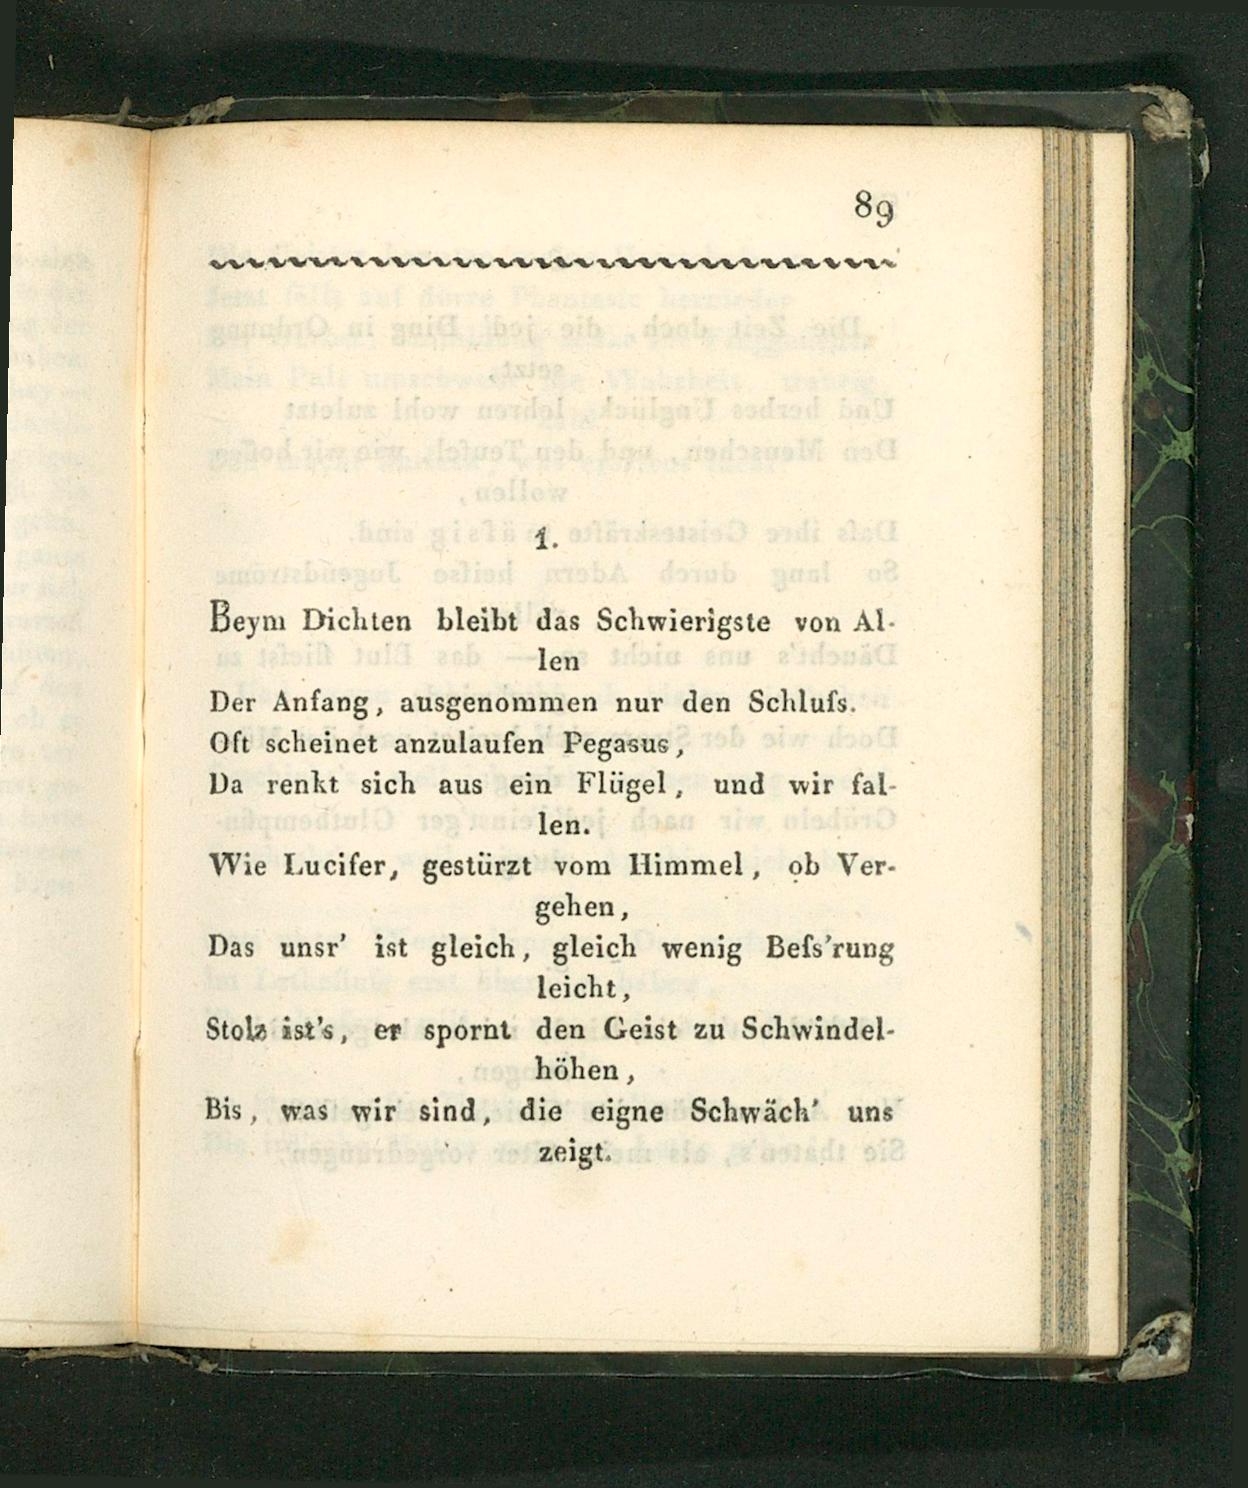 89
1.
Beym Dichten bleibt das Schwierigste von Al-
len
Der Anfang, ausgenommen nur den Schluſs.
Oft scheinet anzulaufen Pegasus,
Da renkt sich aus ein Flügel, und wir fal-
len.
Wie Lucifer, gestürzt vom Himmel, ob Ver-
gehen,
Das unsr' ist gleich, gleich wenig Beſs'rung
leicht,
Stolz ist's, er spornt den Geist zu Schwindel-
höhen,
Bis, was wir sind, die eigne Schwäch' uns
zeigt.